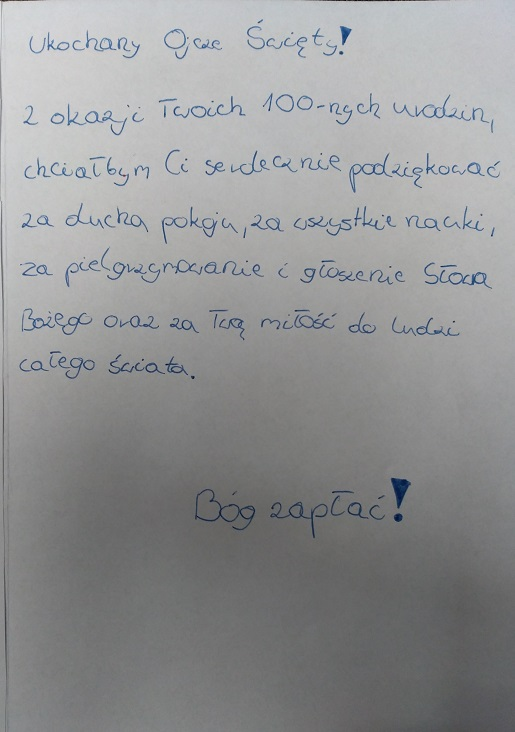 Ukochany Ojcze Święty!
Z okazji Twoich 100-nych urodzin,
chciałbym Ci serdecznie podziękować
za ducha pokoju, za wszystkie nauki,
za pielgrzymowanie i głoszenie Słowa
Bożego oraz za Twą miłość do ludzi
całego świata.
Bóg zapłać!